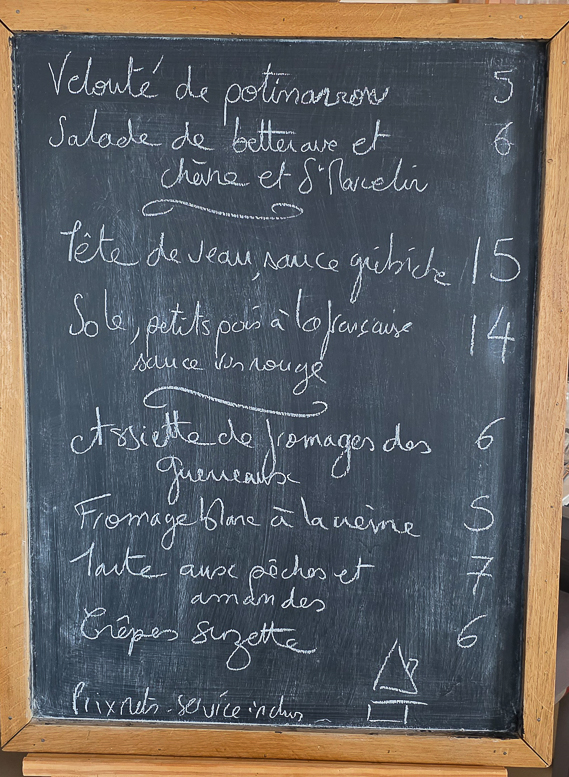 Velouté de potimarron 5
Salade de betterave et 6
chèvre et St Marcelin
Tête de veau, sauce gribiche 15
Sole, petits pois à la française 14
sauce vin rouge
Assiette de fromages des 6
Fromage blanc à la crème 5
Tarte aux pêches et 7
amandes
Crêpes suzette 6
Prix nets. service inclus